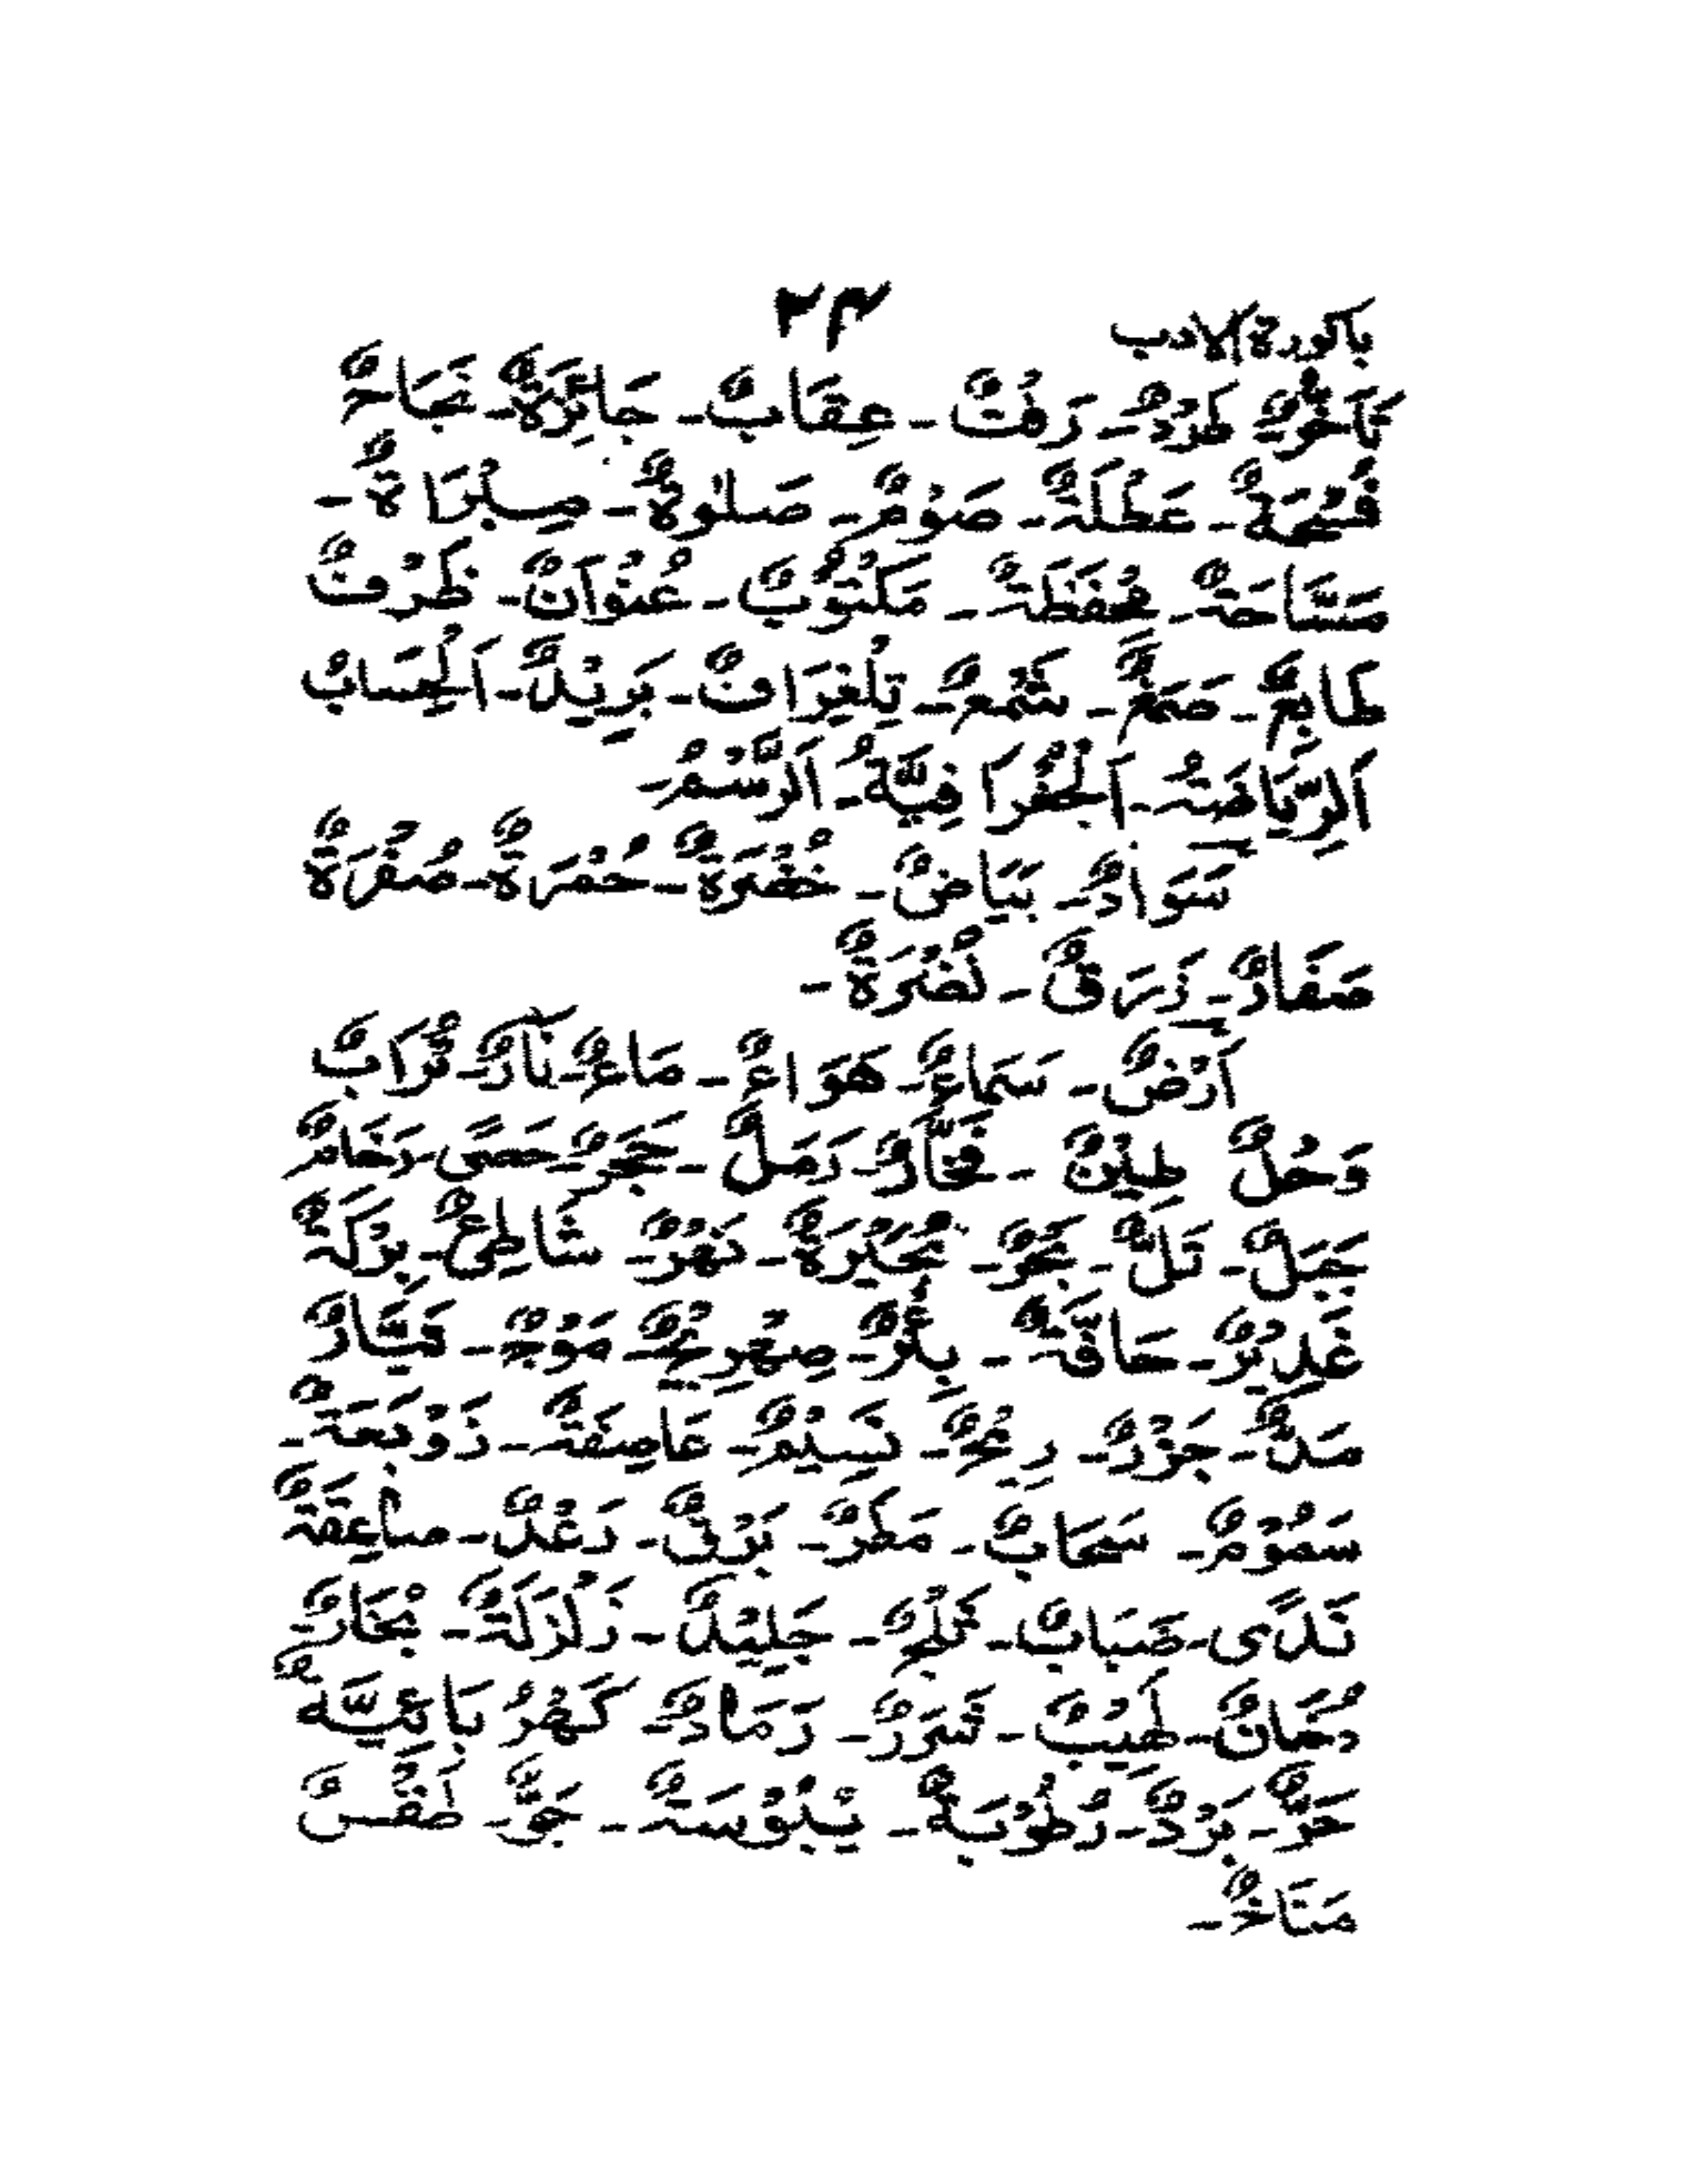 باكورة الادب ٢٣
تَأَخُّرٌ طَرْدٌ - رَفْتٌ - عِقَابٌ - جَائِزَةٌ - نَجَاحٌ
فُسْحَةٌ - عَطْلَةٌ - صَوْمٌ - صَلٰوةٌ - مِبْرَاةٌ -
مَسَّاحَةٌ - مِحْفَظَةٌ - مَكْتُوْبٌ - عُنْوَانٌ - ظَرْفٌ
طَابِعٌ - صَمَغٌ - شَمْعٌ - تِلْغِرَافٌ - بَرِيْدٌ - اَلْحِسَابُ
اَلرِّيَاضَةُ - اَلْجُغْرَافِيَّةُ - اَلرَّسْمُ -
سَوَادٌ - بَيَاضٌ - خُضْرَةٌ - حُمْرَةٌ - صُفْرَةٌ
صَفَارٌ - زَرَقٌ - نُضْرَةٌ -
اَرْضٌ - سَمَاءٌ - هَوَاءٌ - مَاءٌ - نَارٌ - تُرَابٌ
وَحْلٌ طِيْنٌ - فَخَّارٌ - رَمَلٌ - حَجَرٌ - حَصًى - رَخَامٌ
جَبَلٌ - تَلٌّ - بَحْرٌ - بُحَيْرَةٌ - نَهْرٌ - شَاطِئٌ - بِرْكَةٌ
غَدِيْرٌ - حَافَّةٌ - بِئْرٌ - صِهْرِيْجٌ - مَوْجٌ - تَيَّارٌ
مَدٌّ - جَزْرٌ - رِيْحٌ - نَسِيْمٌ - عَاصِفَةٌ - زَوْبَعَةٌ -
سَمُوْمٌ - سَحَابٌ - مَطَرٌ - بَرْقٌ - رَعْدٌ - صَاعِقَةٌ
نَدًى - ضَبَابٌ - ثَلْجٌ - جَلِيْدٌ - زَلْزَلَةٌ - بُخَارٌ -
دُخَانٌ - لَهِيْبٌ - شَرَرٌ - رَمَادٌ - كَهْرُبَائِيَّةٌ
حَرٌّ - بَرْدٌ - رُطُوْبَةٌ - يَبُوْسَةٌ - جَوٌّ - طَقْسٌ
مَنَاخٌ -